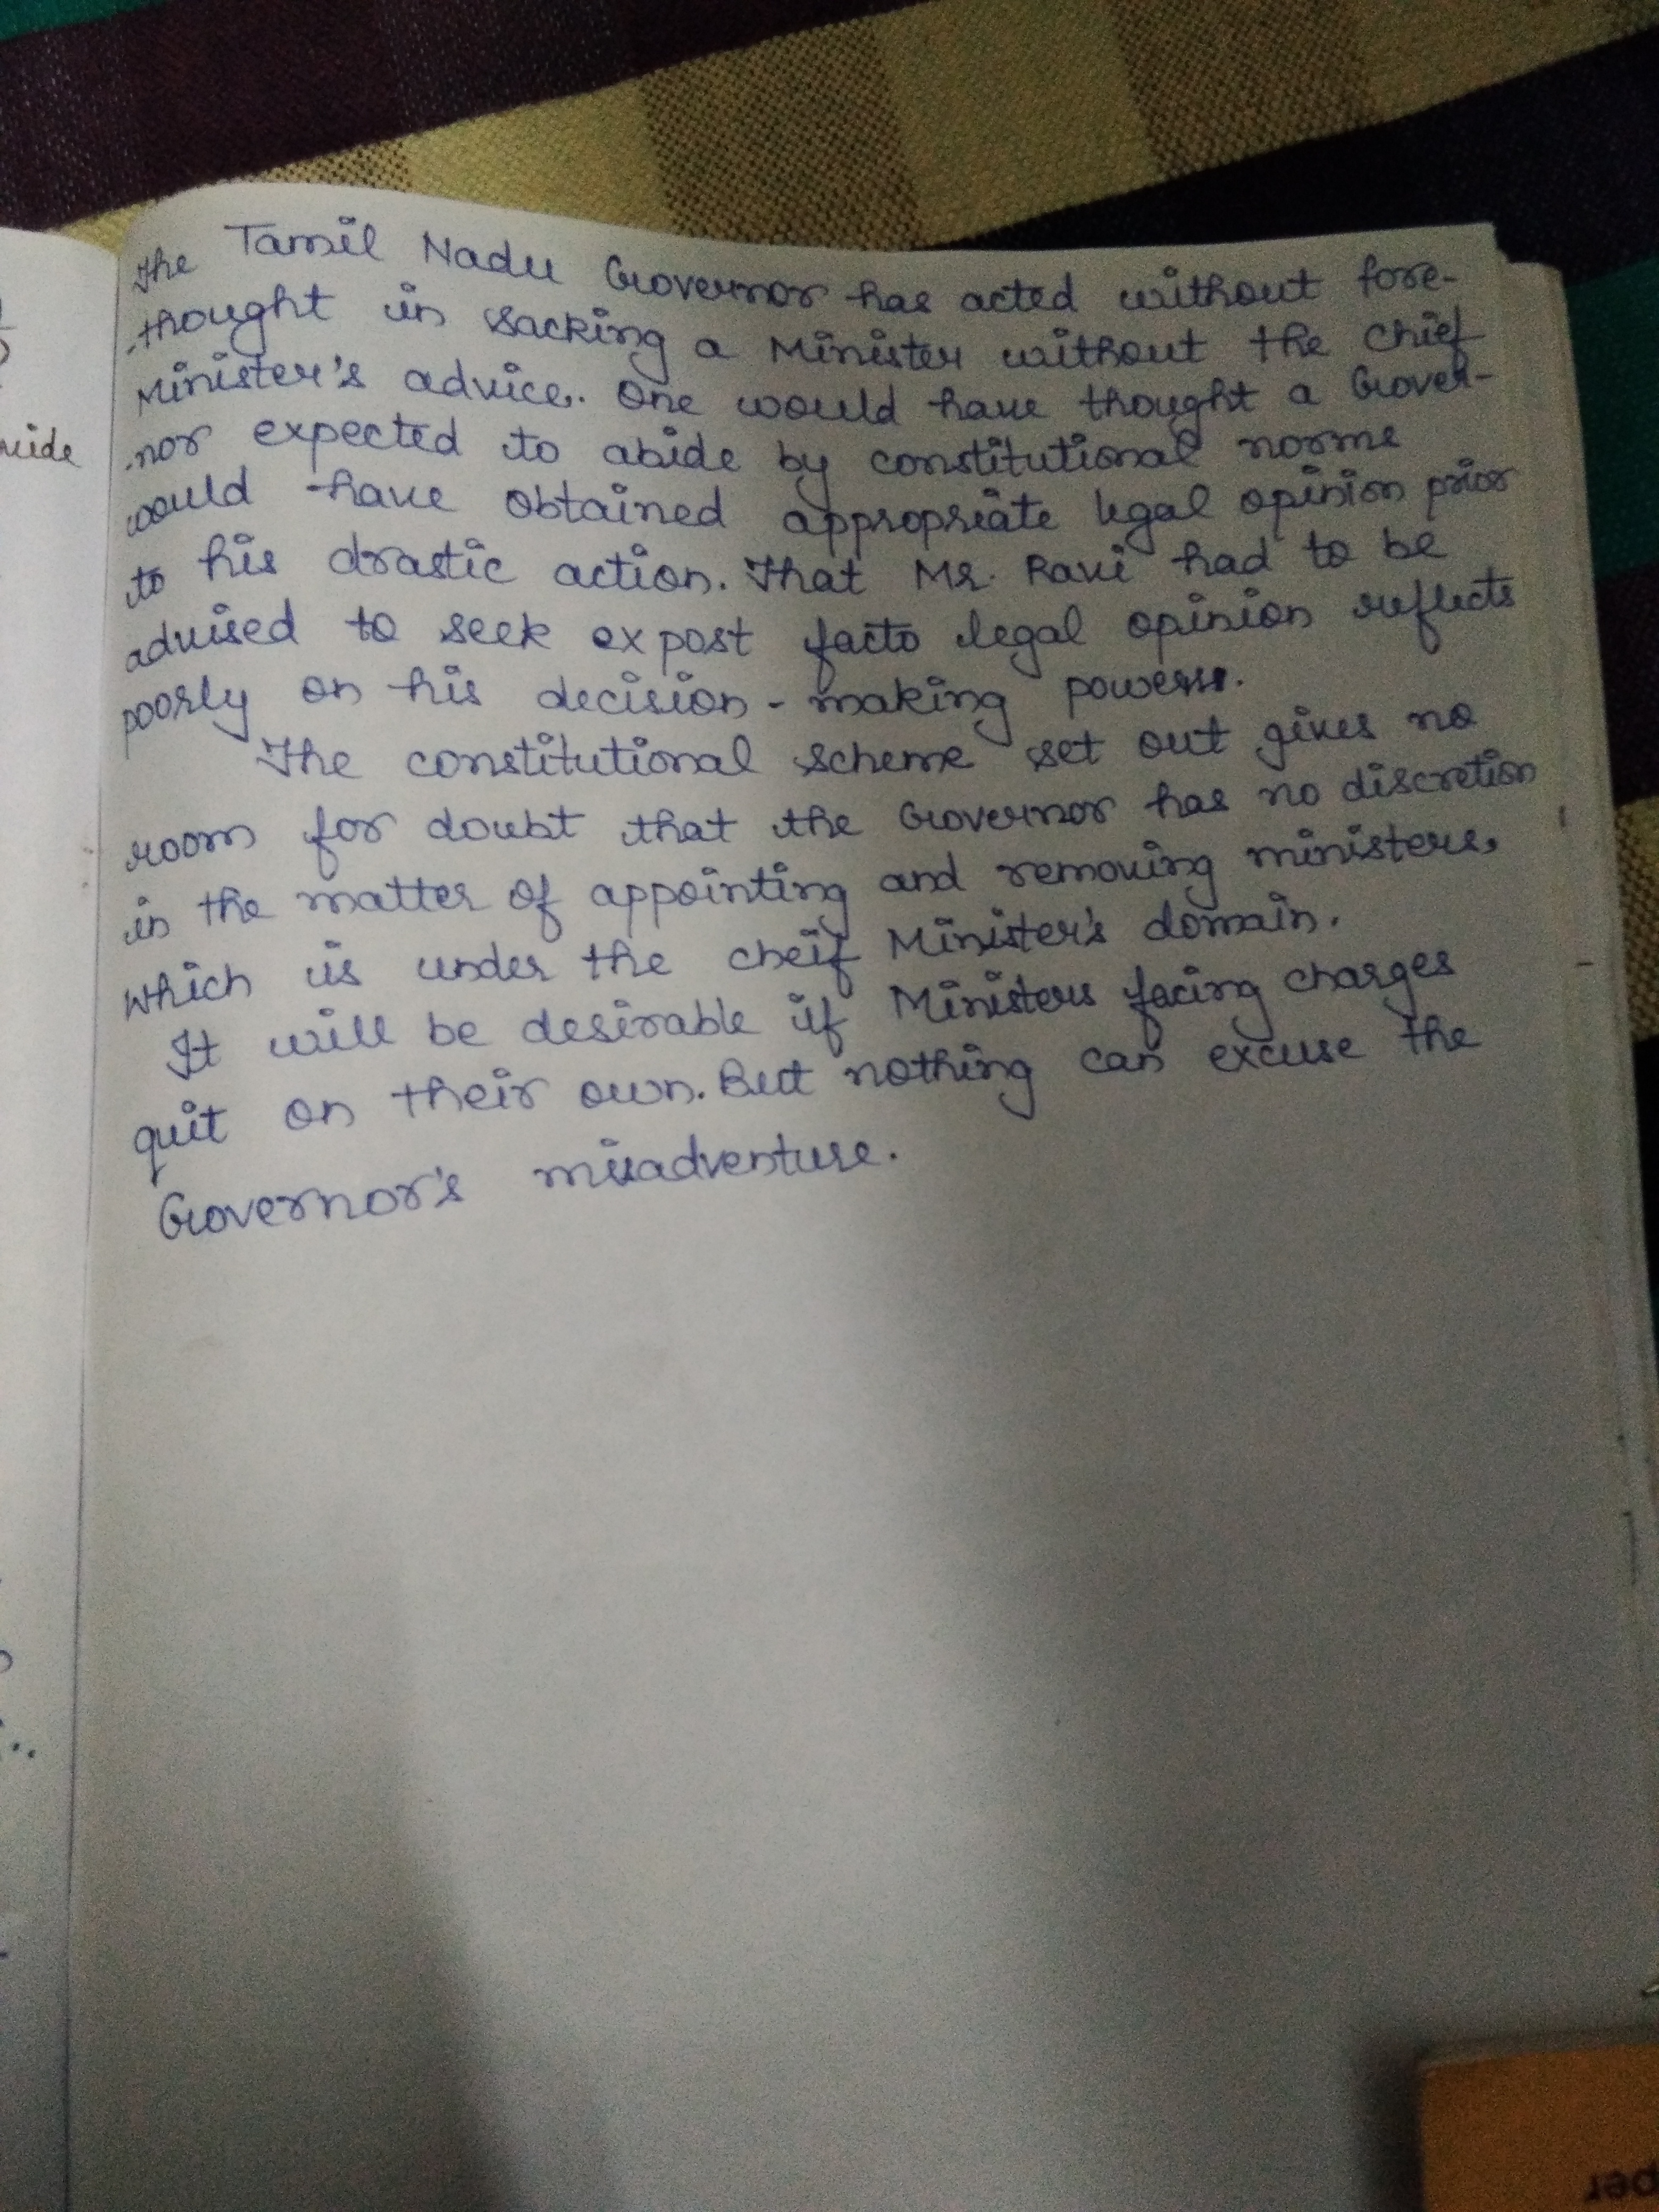 The Tamil Nadu Governor has acted without fore-
thought in sacking a Minister without the Chief
Minister's advice. One would have thought a Gover-
nor expected to abide by constitutional norms
would have obtained appropriate legal opinion prior
to his drastic action. That Mr. Ravi had to be
advised to seek ex post facto legal opinion reflects
poorly on his decision-making powers.
The constitutional scheme set out gives no
room for doubt that the Governor has no discretion
in the matter of appointing and removing ministers,
which is under the cheif Minister's domain.
It will be desirable if Ministers facing charges
quit on their own. But nothing can excuse the
Governor's misadventure.
uide
per